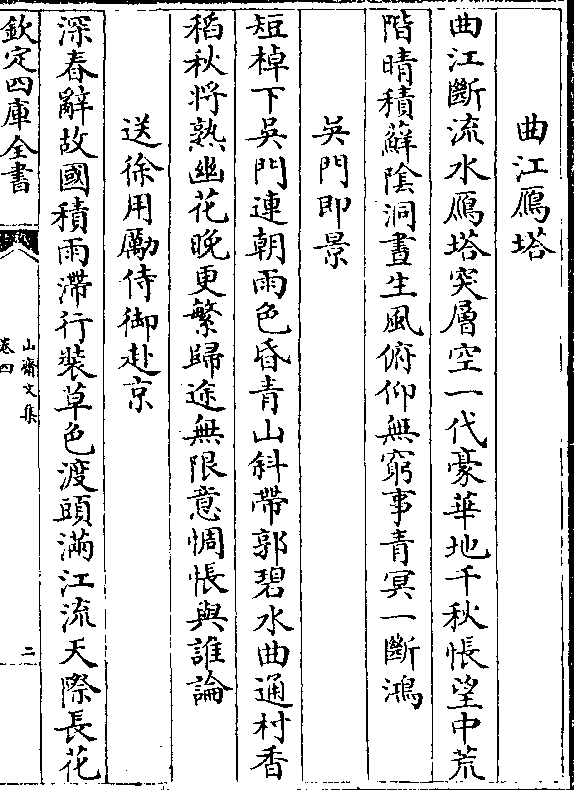 曲江鴈塔
曲江斷流水鴈塔突層空一代豪華地千秋悵望中荒
階晴積蘚陰洞晝生風俯仰無窮事青冥一斷鴻
吳門即景
短棹下吳門連朝雨色昏青山斜帶郭碧水曲通村香
稻秋將熟幽花晚更繁歸途無限意惆悵與誰論
送徐用勵侍御赴京
深春辭故國積雨滯行裝草色渡頭滿江流天際長花
欽定四庫全書
山齋文集
卷四
二